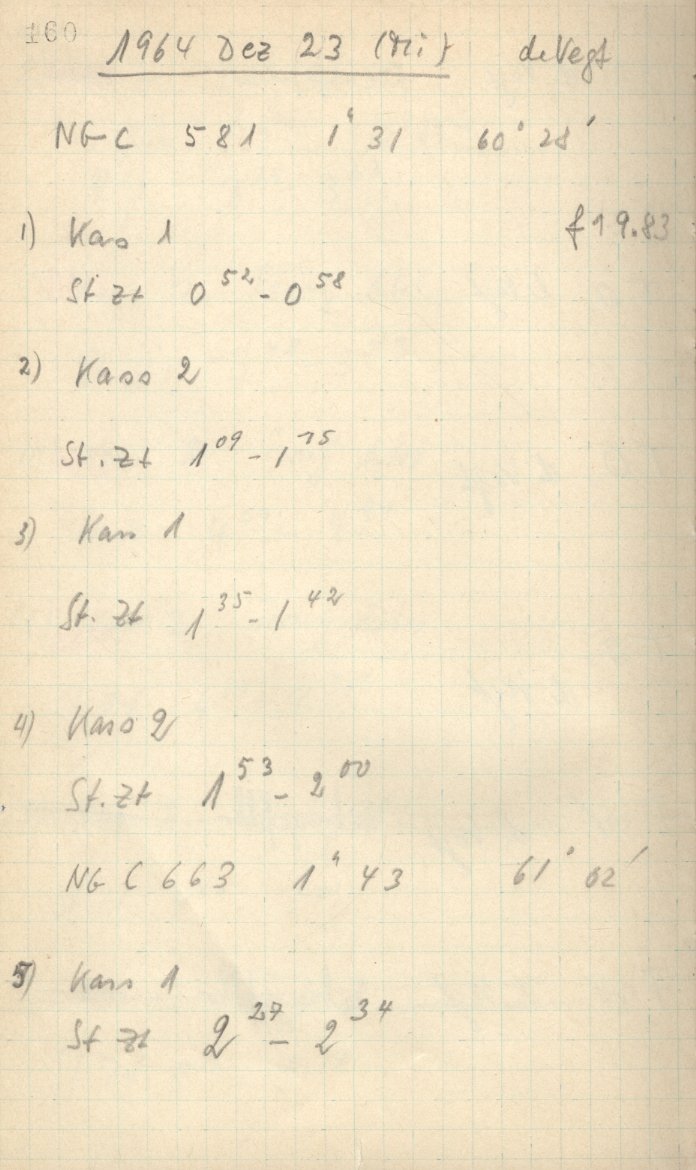 160
1964 Dez 23 (Mi) deVegt
NGC 581 1ʰ 31 60° 28′
f 19.83
1) Kass 1
St Zt 0⁵² - 0⁵⁸
2) Kass 2
St. Zt 1⁰⁹ - 1¹⁵
3) Kass 1
St. Zt 1³⁵ - 1⁴²
4) Kass 2
St. Zt 1⁵³ - 2⁰⁰
NGC 663 1ʰ 43 61° 02′
5) Kass 1
St Zt 2²⁷ - 2³⁴